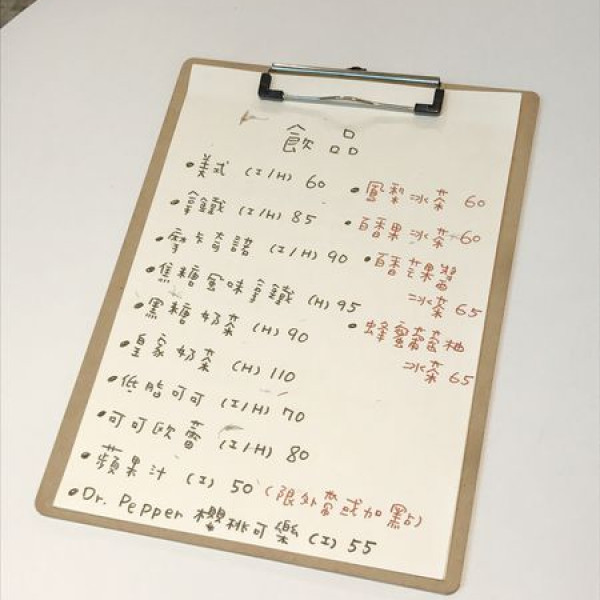 飲品
•美式 (I/H) 60
•拿鐵 (I/H) 85
•摩卡奇諾 (I/H) 90
•焦糖風味拿鐵 (H) 95
•黑糖奶茶 (H) 90
•皇家奶茶 (H) 110
•低脂可可 (I/H) 70
•可可歐蕾 (I/H) 80
•蘋果汁 (I) 50 (限外帶或加點)
•Dr. Pepper 櫻桃可樂 (I) 55
•鳳梨冰茶 60
•百香果冰茶 60
•百香芒果
冰茶 65
•蜂蜜葡萄柚
冰茶 65